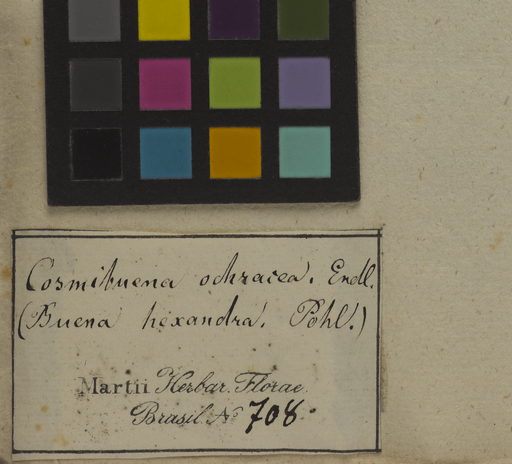 Cosmibuena ochracea. Endl.
(Buena hexandra. Pohl.)
Martii Herbar. Florae
Brasil. No 708.